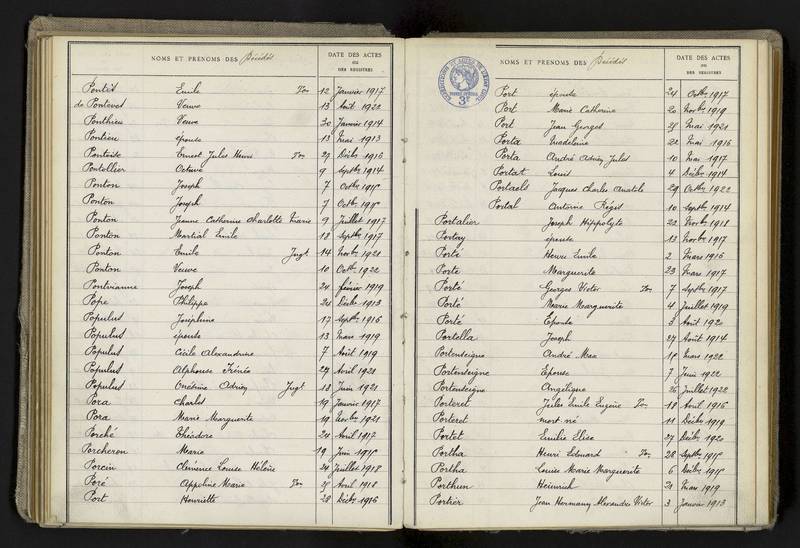 NOMS ET PRÉNOMS DES Décédés DATE DES ACTES
OU
DES REGISTRES
Pontet Emile Con 12 Janvier 1917
de Pontevot Veuve 13 Août 1922
Ponthieu Veuve 30 Janvier 1914
Pontieu épouse 13 Mai 1913
Pontoise Ernest Jules Henri Con 27 Décbr 1916
Pontollier Octave 9 Septbr 1914
Ponton Joseph 7 Octbr 1915
Ponton Joseph 7 Octbr 1915
Ponton Jeanne Catherine Charlotte Marie 9 Juillet 1917
Ponton Martial Emile 18 Septbr 1917
Ponton Emile Jugt 14 Novbr 1921
Ponton Veuve 10 Octbr 1922
Pontvianne Joseph 24 février 1919
Pope Philippe 24 Décbr 1913
Populus Joséphine 17 Septbr 1916
Populus épouse 13 Mars 1919
Populus Cécile Alexandrine 7 Août 1919
Populus Alphonse Irénée 29 Avril 1921
Populus Onésime Adrien Jugt 13 Juin 1921
Pora Charles 19 Janvier 1917
Pora Marie Marguerite 19 Novbr 1921
Porché Théodore 24 Avril 1917
Porcheron Marie 19 Juin 1915
Porcin Clémence Louise Hélène 24 Juillet 1918
Poré Appoline Marie Con 25 Avril 1918
Port Henriette 28 Décbr 1916
NOMS ET PRÉNOMS DES Décédés DATE DES ACTES
OU
DES REGISTRES
Port épouse 24 Octbr 1917
Port Marie Catherine 20 Novbr 1919
Port Jean Georges 25 Mai 1921
Porta Madeleine 22 Mai 1916
Porta André Adrien Jules 10 Mai 1917
Portat Louis 4 Décbr 1914
Portaels Jacques Charles Anatole 29 Octbr 1922
Portal Antoine Régis 10 Septbr 1914
Portalier Joseph Hippolyte 22 Novbr 1918
Portay épouse 13 Novbr 1917
Porte Henri Emile 2 Mars 1916
Porte Marguerite 23 Mars 1917
Porté Georges Victor Con 7 Septbr 1917
Porté Marie Marguerite 4 Juillet 1919
Porté Epouse 3 Août 1920
Portella Joseph 27 Août 1914
Portenseigne André Max 15 Mars 1922
Portenseigne Epouse 7 Juin 1922
Portenseigne Angélique 26 Juillet 1922
Porteret Jules Emile Eugène Con 18 Avril 1916
Porteret mort-né 11 Décbr 1919
Portet Emilie Elise 27 Décbr 1920
Portha Henri Léonard Con 28 Septbr 1915
Portha Louise Marie Marguerite 6 Décbr 1915
Porthun Heinrich 21 Mars 1919
Portier Jean Hermany Alexandre Victor 3 Janvier 1913
3F